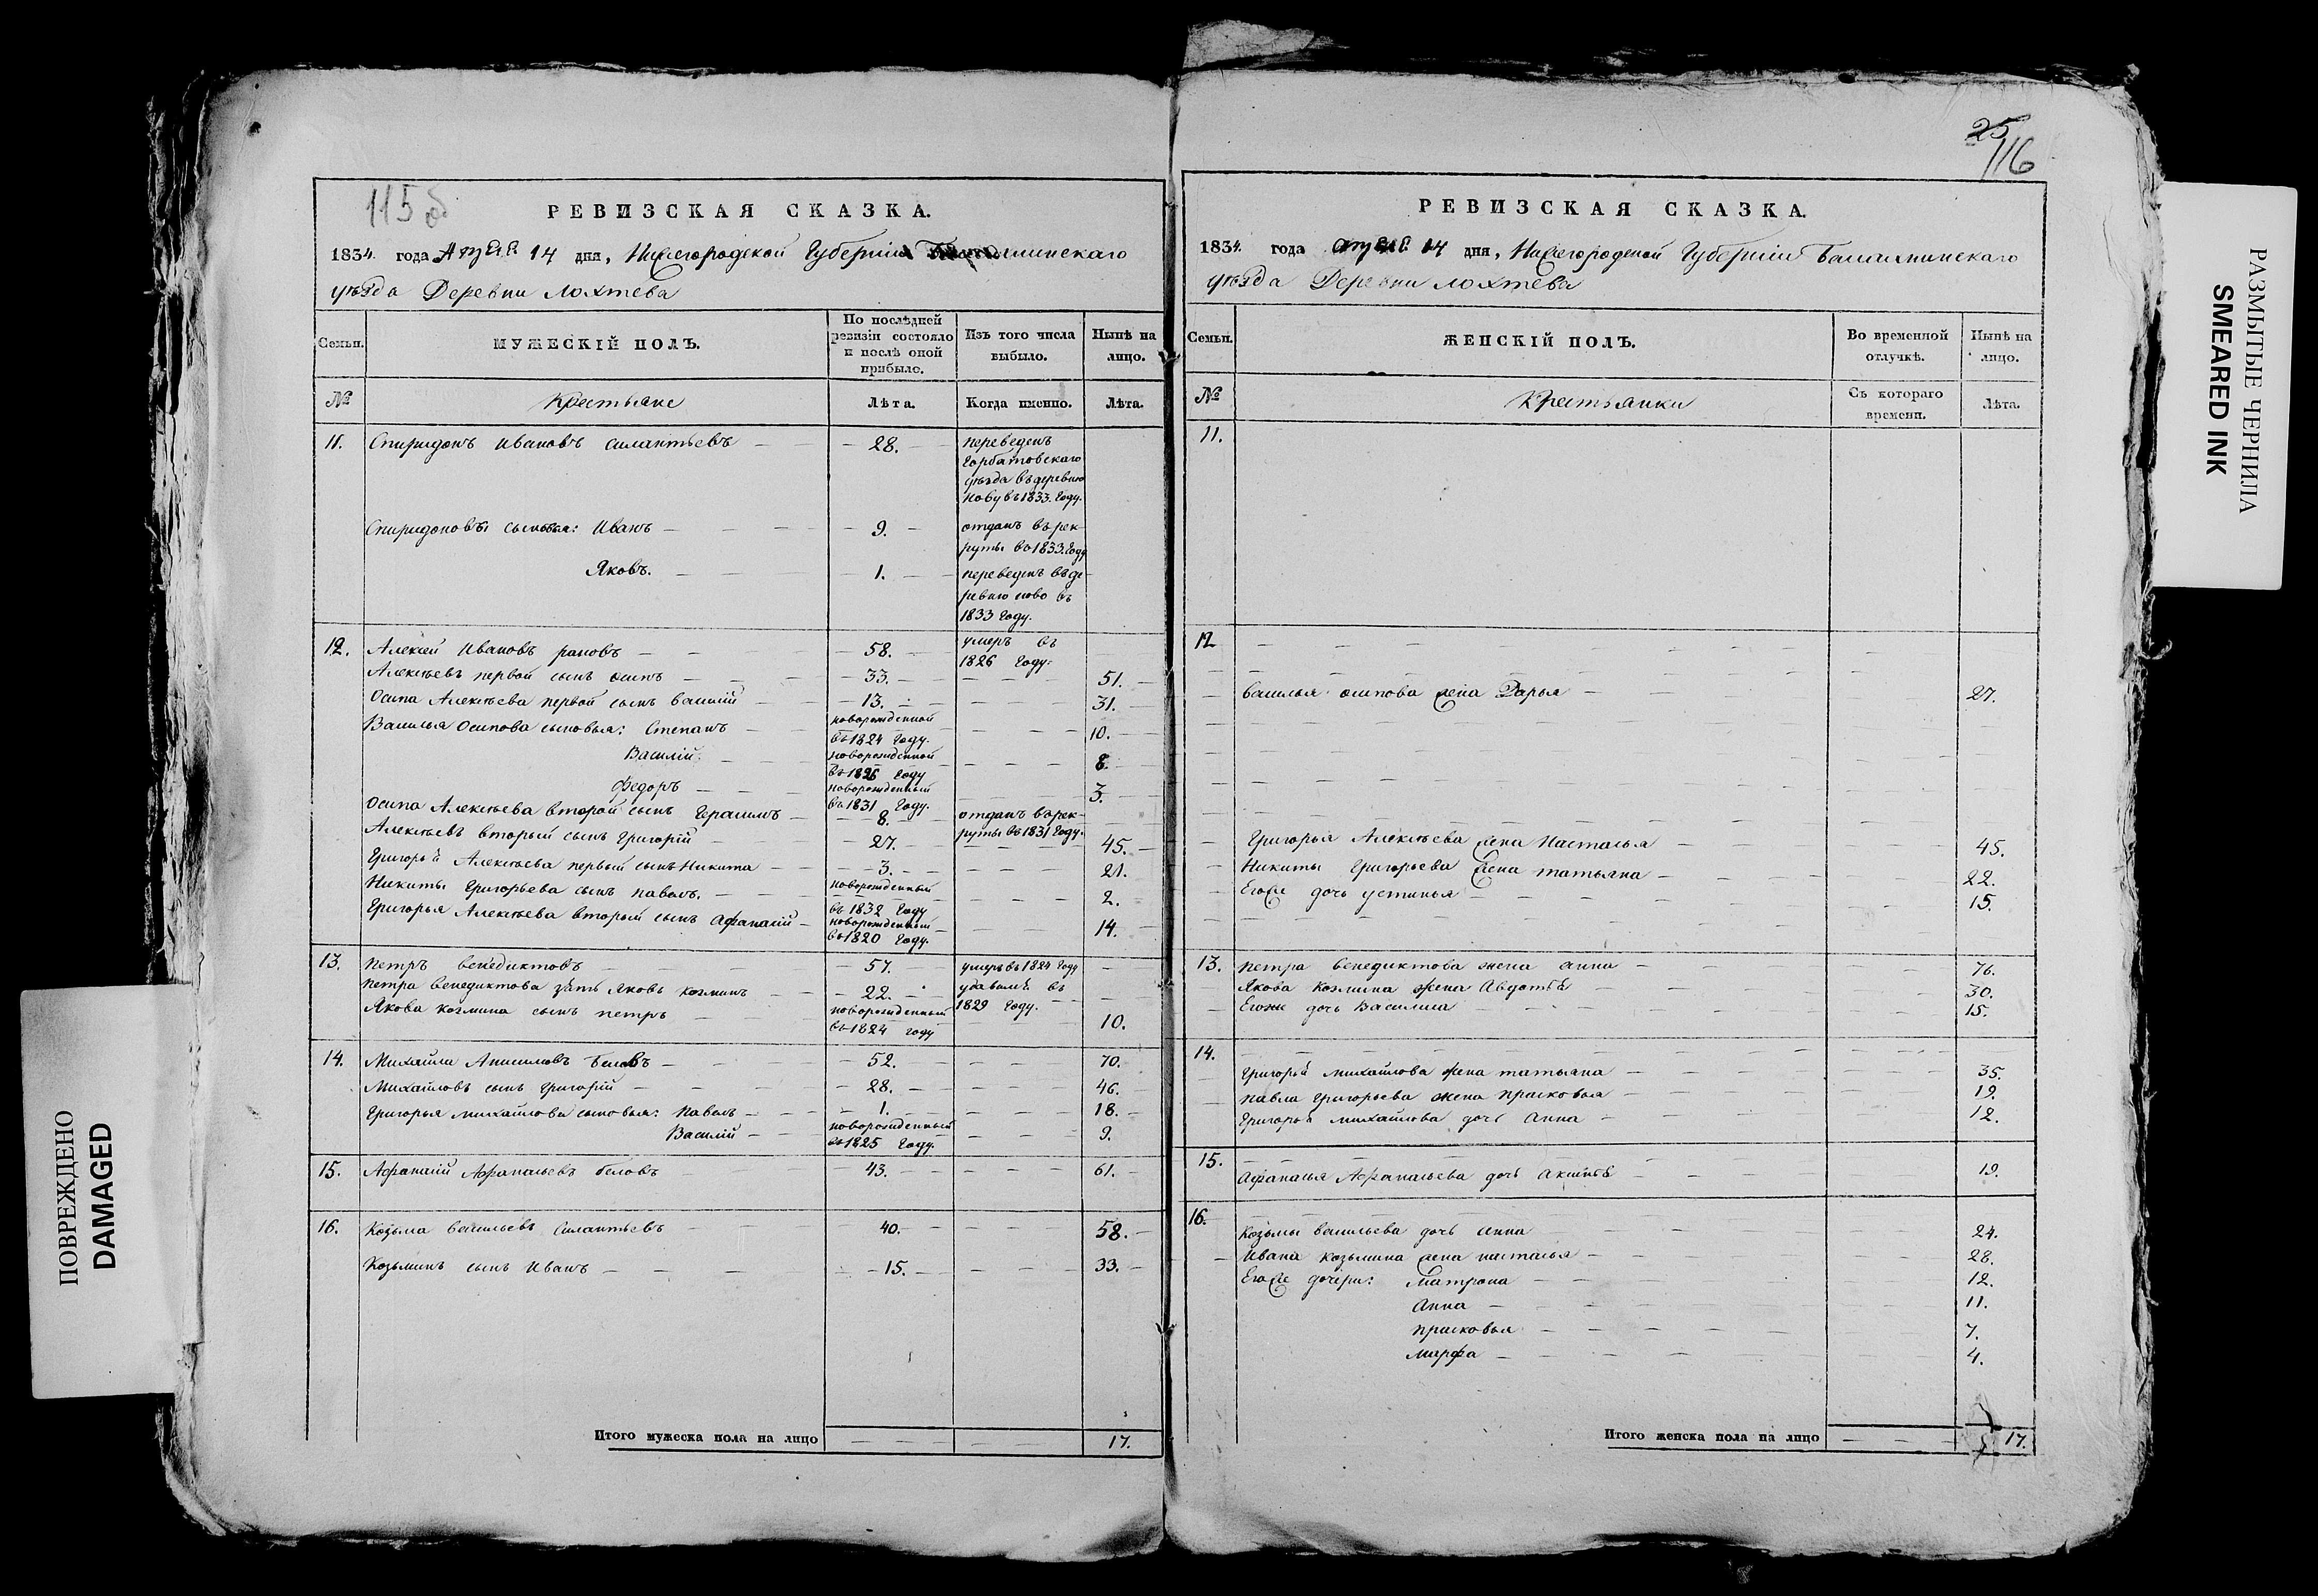 115 об
РЕВИЗСКАЯ СКАЗКА.
1834. года Апреля 14 дня, Нижегородской Губерніи Балахнинскаго
уѣзда Деревни Лохтева
Семьи.
МУЖЕСКІЙ ПОЛЪ.
По послѣдней ревизіи состояло и послѣ оной прибыло.
Изъ того числа выбыло.
Нынѣ на лицо.
№ Крестьяне Лѣта. Когда именно. Лѣта.
11. Спиридонъ Ивановъ Силантьевъ 28. переведенъ
Горбатовскаго
уѣзда въ деревню
Нову въ 1833. Году.
Спиридоновы сыновья: Иванъ 9. отданъ въ рек-
руты въ 1833. Году
Яковъ. 1. переведенъ въ де-
ревню ново въ
1833 Году.
12. Алексей Ивановъ рановъ 58. умеръ въ
1826 Году.
Алексѣевъ первой сынъ Осипъ 33. 51.
Осипа Алексѣева первой сынъ Василій 13. 31.
Василья Осипова сыновья: Степанъ новорожденной
въ 1824 Году. 10.
Василій. новорожденной
въ 1826 Году 8.
Федоръ новорожденный
въ 1831 Году. 3.
Осипа Алексѣева второй сынъ Герасимъ 8. отданъ въ рек-
руты въ 1831 Году.
Алексѣевъ вторый сынъ Григорій 27. 45.
Григорья Алексѣева первый сынъ Никита 3. 21.
Никиты Григорьева сынъ павелъ. новорожденный
въ 1832 Году 2.
Григорья Алексѣева вторый сынъ Афанасій новорожденный
въ 1820 Году. 14.
13. Петръ Венедиктовъ 57. умеръ въ 1824 Году
Петра Венедиктова зять Яковъ Козминъ 22. удавился въ
1829 Году.
Якова Козмина сынъ петръ новорожденный
въ 1824 году 10.
14. Михайла Анисимовъ Беловъ 52. 70.
Михайловъ сынъ Григорій 28. 46.
Григорья Михайлова сыновья: Павелъ 1. 18.
Василій новорожденный
въ 1825 Году. 9.
15. Афанасій Афанасьевъ беловъ 43. 61.
16. Козьма Васильевъ Силантьевъ 40. 58.
Козьминъ сынъ Иванъ 15. 33.
Итого мужеска пола на лицо 17.
25
116
РЕВИЗСКАЯ СКАЗКА.
1834. года Апреля 14 дня, Нижегородской Губерніи Балахнинскаго
уѣзда Деревни Лохтева
Семьи.
ЖЕНСКІЙ ПОЛЪ.
Во временной отлучкѣ.
Нынѣ на лицо.
№ Крестьянки Съ котораго времени. Лѣта.
11.
12
Василья осипова жена Дарья 27.
Григорья Алексѣева жена Настасья 45.
Никиты Григорьева жена татьяна 22.
Егоже дочь устинья 15.
13. Петра Венедиктова жена анна 76.
Якова Козмина жена Авдотья 30.
Егоже дочь Василиса 15.
14.
Григорья михайлова жена татьяна 35.
павла Григорьева жена прасковья 19.
Григорья михайлова дочь Анна 12.
15.
Афанасья Афанасьева дочь Аксинья 19.
16.
Козьмы васильева дочь анна 24.
Ивана Козьмина жена настасья 28.
Егоже дочери: Матрона 12.
Анна 11.
прасковья 7.
марфа 4.
Итого женска пола на лицо 17.
ПОВРЕЖДЕНО
DAMAGED
РАЗМЫТЫЕ ЧЕРНИЛА
SMEARED INK